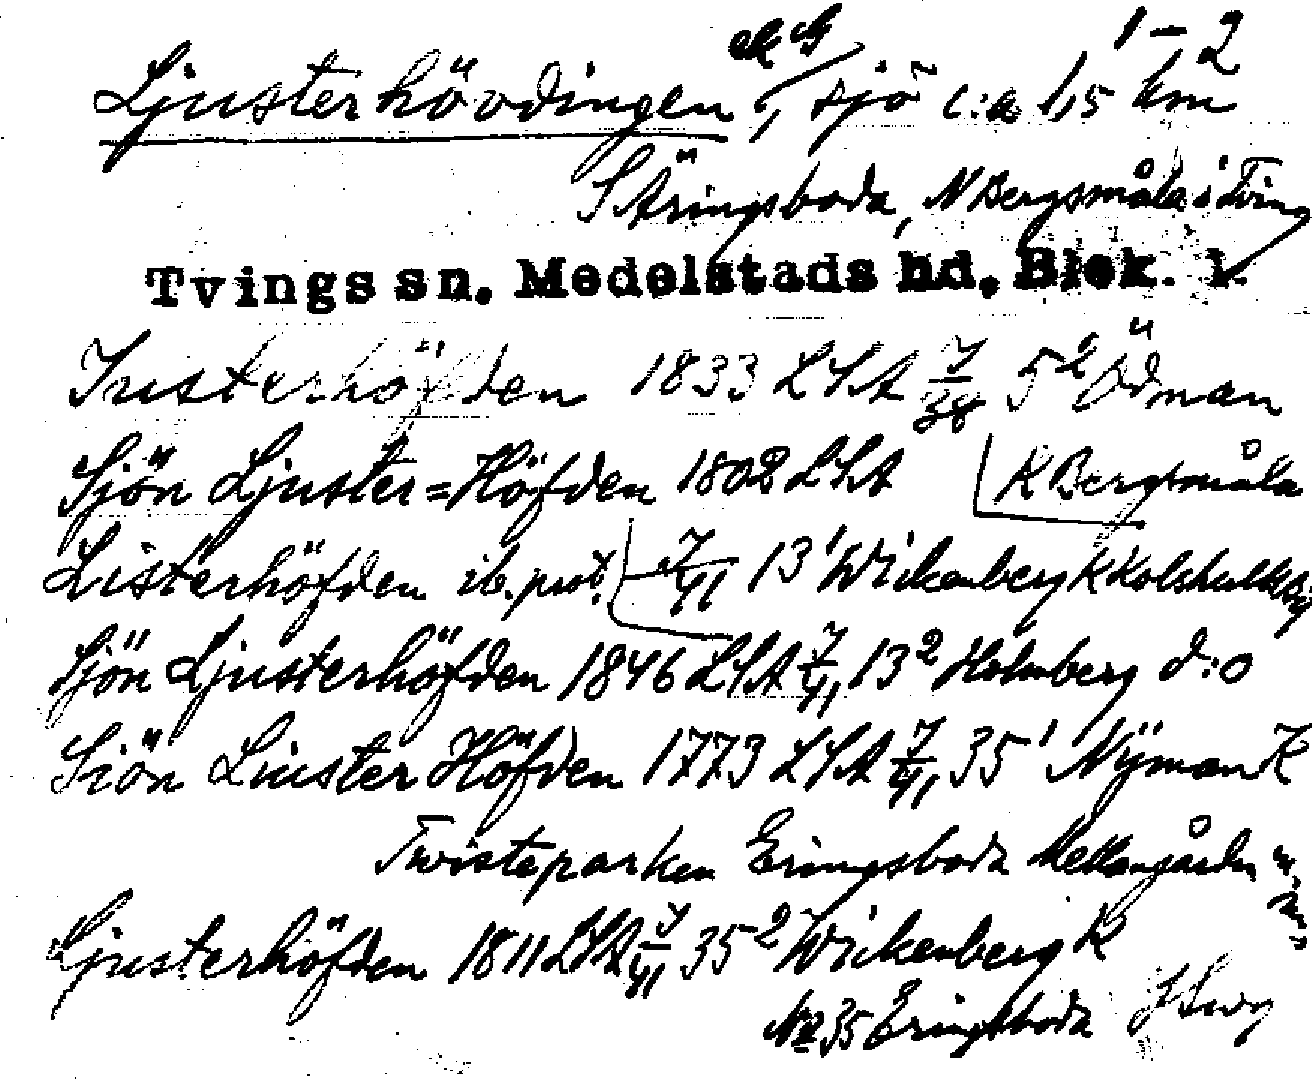 Ljusterhövdingen, sjö c:a 1,5 km 1–2
S Äringsboda, N Bergsmåla i Tving
Tvings sn. Medelstads hd. Blek. l.
Iusterhöfden 1833 LSA 7/38 5² Ödman
Sjön Ljuster=Höfden 1802 LSA K Bergsmåla
Listerhöfden ib. prot. 7/41 13¹ Wickenberg K
Sjön Ljusterhöfden 1846 LSA 7/41, 13² Holmberg d:o
Siön Liuster Höfden 1773 LSA 7/41, 35¹ Nÿman K
Twisteparken Eringsboda Mellangården m.m.
Ljusterhöfden 1811 LSA 7/41 35² Wickenberg K
No 35 Eringsboda